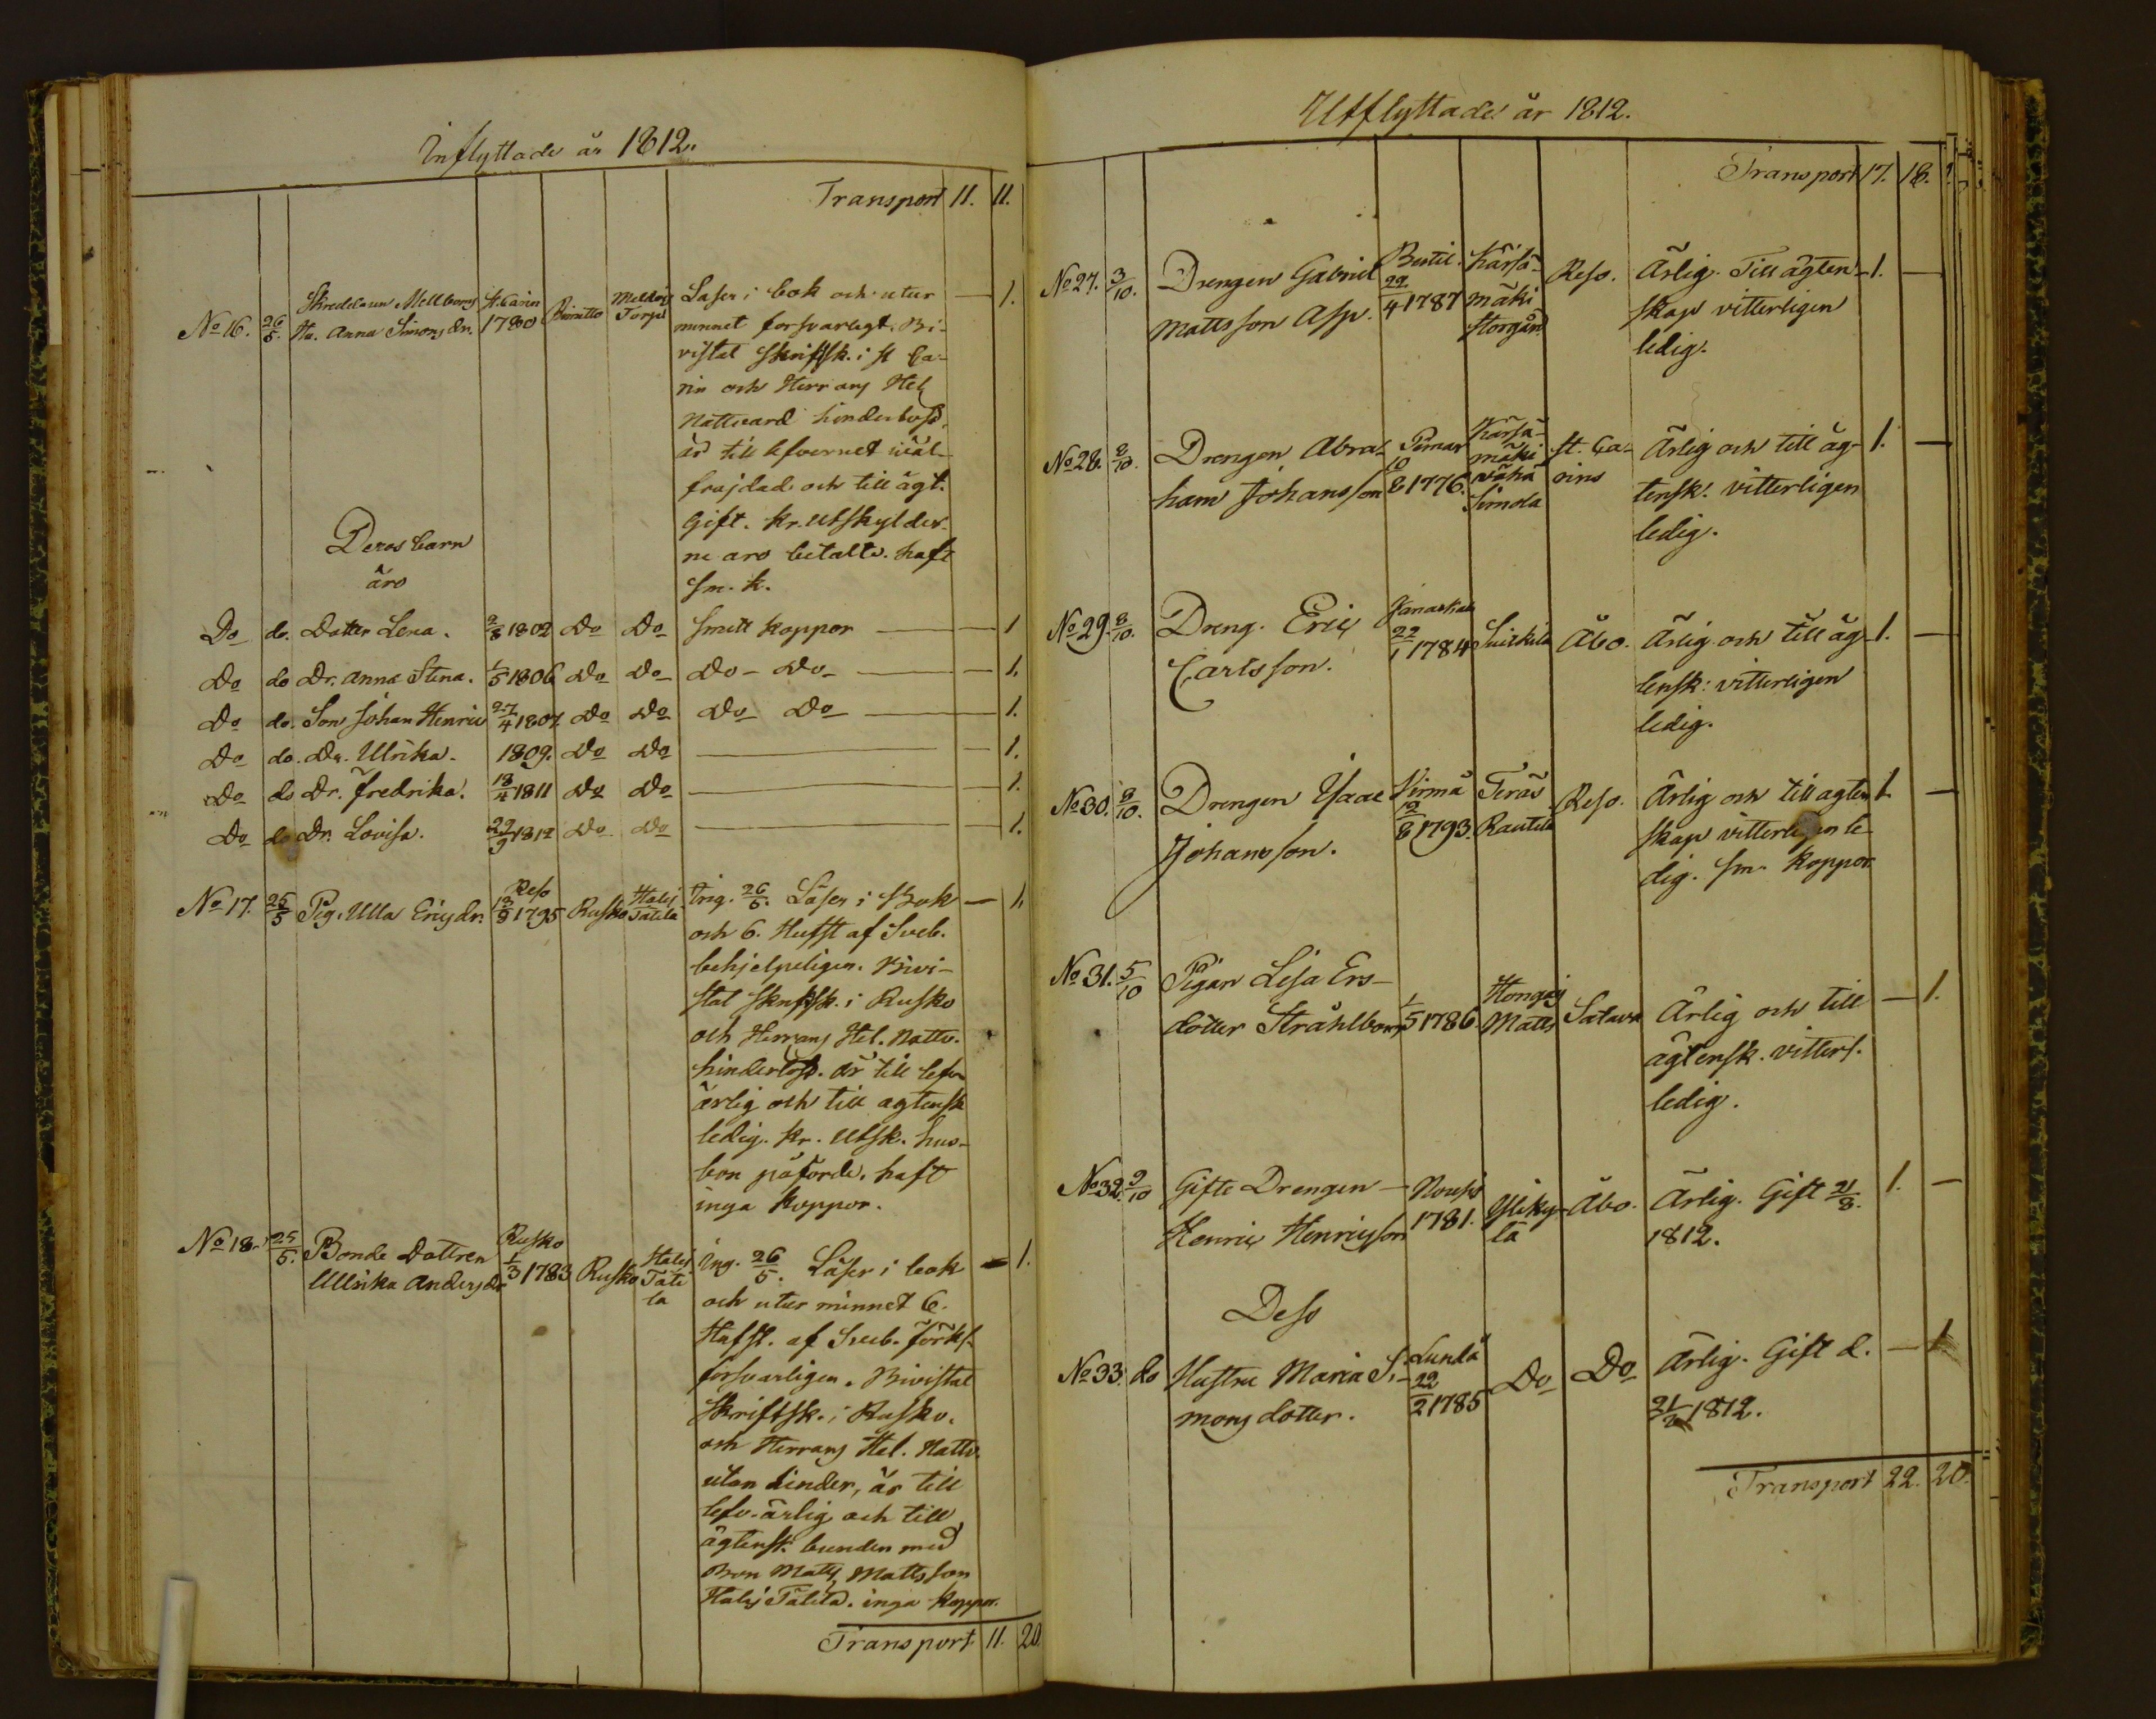 Inflyttade år 1812.
Transport 11. 11.
No 16. 26/5. Skreddaren Mellberg
Hu. Anna Simons dr. St. Carin 1780
Läser i bok och utur — 1.
minnet forsvarligt. Bi-
vistat Skriftsk. i St Ca-
rin och Herrans Hel
Nattvard hinderlöst,
är till lefvernet wäl
frajdad och till ägt.
Gift. Kr. Utskylder-
ne äro betalte. haft
Sm. k.
Deras barn
äro
Do do. Dotter Lena. 2/8 1802 Do Do Smitt koppor — 1
Do do Dr. Anna Stina. 1/5 1806 Do Do Do Do — 1.
Do do. Son Johan Henric 27/4 1807. Do Do Do Do — 1.
Do do. Dr. Ulrika. 1809. Do Do — 1.
Do do Dr. Fredrika. 18/4 1811 Do Do — 1.
Do do Dr. Lovisa. 22/9 1812 Do Do — 1.
No 17. 25/5 Pig. Ulla Erics dr. Reso 13/9 1795 Rusko Halis Tätilä
Ing. 26/5. Läser i Bok — 1.
och 6. Hufst af Sveb.
behjelpeligen. Bivi-
stat Skriftsk. i Rusko
och Herrans Hel. Nattv.
hinderlöst. är till lefv
ärlig och till agtensk
ledig. Kr. Utsk. hus-
bon påförde. haft
inga koppor.
No 18. 25/5. Bonde Dottren
Ullrika Anders dr Rusko 1/3 1783 Rusko Halis Täti
la
Ing. 26/5. Läser i bok — 1.
och utur minnet 6.
Hufst. af Sveb. Förkl.
forsvarligen. Bivistat
Skriftsk. i Rusko.
och Herrans Hel. Nattv.
utan hinder, är till
lefv. ärlig och till
ägtensk. bunden med
Bon Mats Mattsson
Halis Tätilä. inga koppor.
Transport 11. 20
Utflyttade år 1812.
Transport 17. 18.
No 27. 3/10. Drengen Gabriel
Mattsson Asp. 22/4 1787
Kärsä-
mäki
Storgård
Reso. Ärlig. Till ägten- 1. —
skap vitterligen
ledig.
No 28. 8/10. Drengen Abra-
ham Johansson Pemar 10/8 1776.
Kärsä-
mäki
Vähä
Simola
St. Ca-
rins
Ärlig och till äg- 1. —
tensk. vitterligen
ledig.
No 29. 8/10. Dreng. Eric
Carlsson. 22/1 1784 Åbo. Ärlig och till äg- 1. —
tensk: vitterligen
ledig.
No 30. 8/10. Drengen Isaac
Johansson. Virmå 12/8 1793. Teräs
Rautila
Reso. Ärlig och till agten 1. —
skap vitterligen le
dig. Sm. koppor
No 31. 5/10 Pigan Lisa Ers-
dotter Stråhlbom 1/5 1786. Matts Satava Ärlig och till — 1.
ägtensk. vitterl.
ledig.
No 32. 9/10 Gifte Drengen —
Henric Henricsson Nousis
1781. Yliky-
lä
Åbo. Ärlig. Gift 21/8. 1. —
1812.
Dess
No 33. do Hustru Maria Si-
mons dotter. Lundå
22/2 1785 Do Do Ärlig. Gift d. — 1
21/8 1812.
Transport 22. 20.